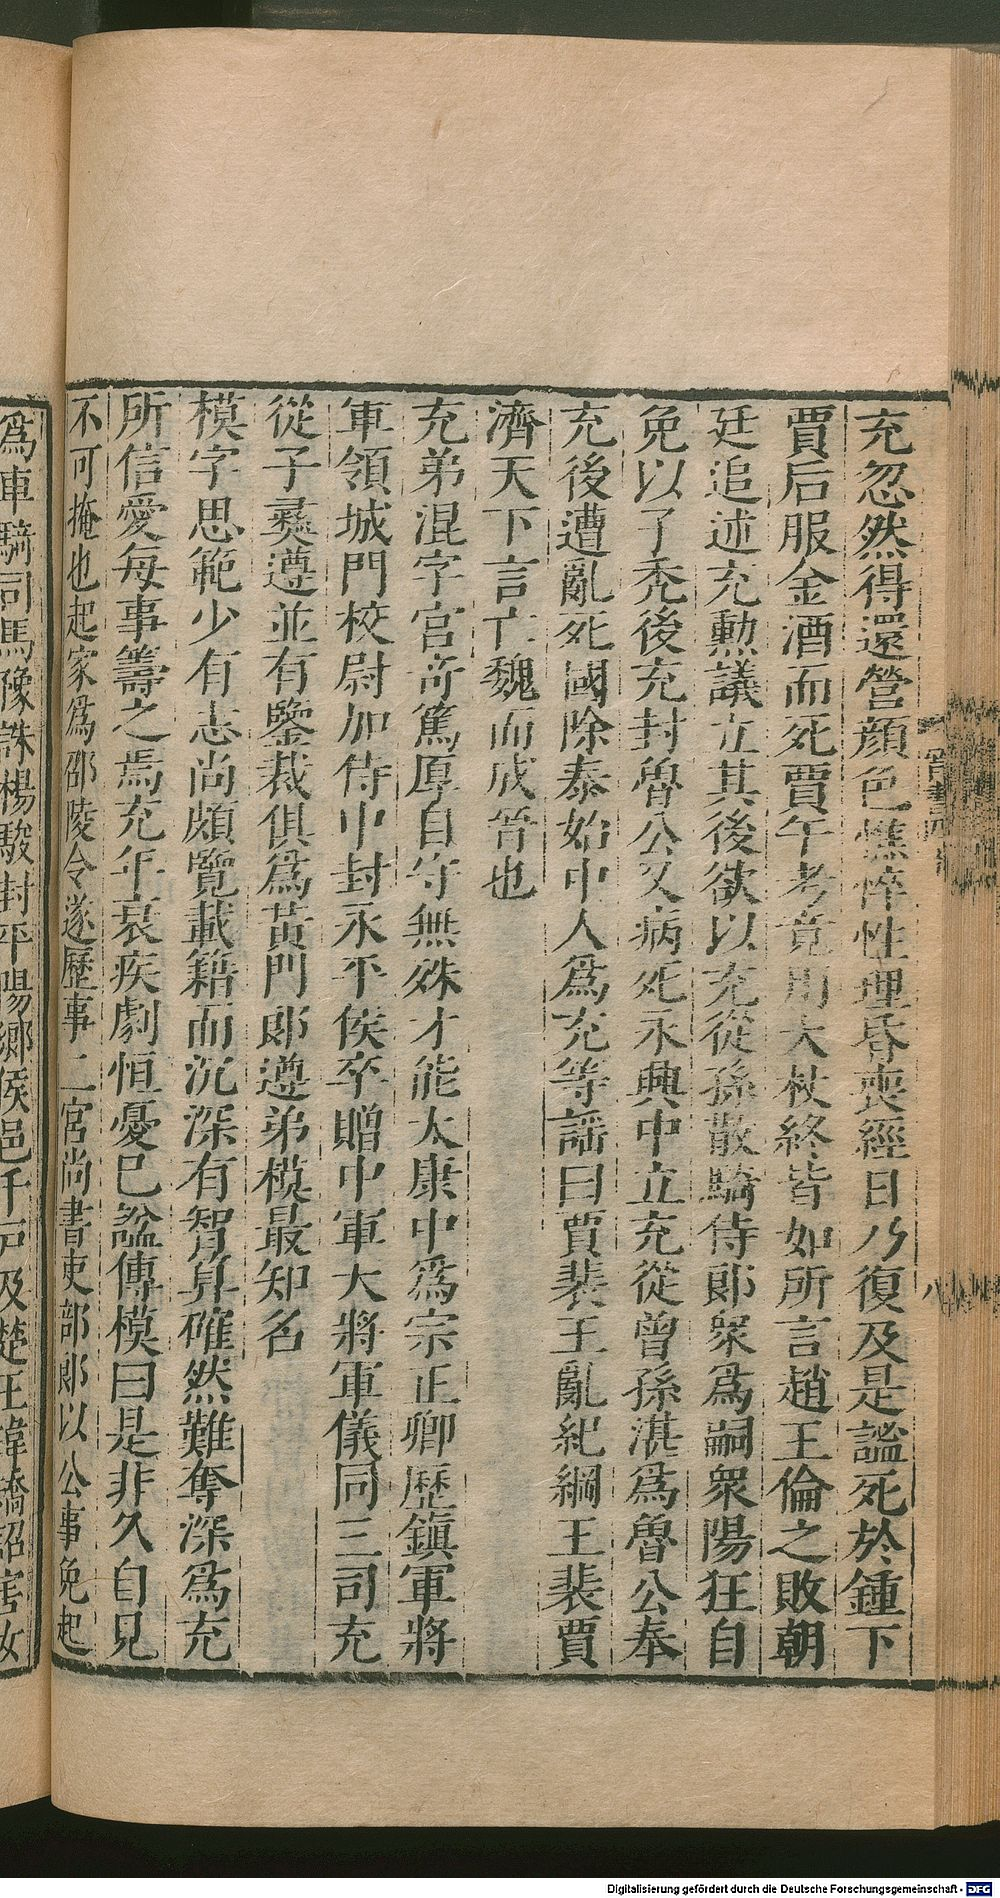 充忽然得還營顔色憔悴性理昏喪經日乃復及是謐死於鍾下
賈后服金酒而死賈午考竟用大杖終皆如所言趙王倫之敗朝
廷追述充勲議立其後欲以充從孫散騎侍郎衆爲嗣衆陽狂自
免以子禿後充封魯公又病死永興中立充從曾孫湛爲魯公奉
充後遭亂死國除泰始中人爲充等謡曰賈裴王亂紀綱王裴賈
濟天下言亡魏而成晉也
充弟混字宮奇篤厚自守無殊才能太康中爲宗正卿歷鎮軍將
軍領城門校尉加侍中封永平侯卒贈中軍大將軍儀同三司充
從子彞遵並有鑒裁俱爲黃門郎遵弟模最知名
模字思範少有志尚頗覽載籍而沉深有智算確然難奪深爲充
所信愛每事籌之焉充年衰疾劇恒憂已謚傳模曰是非久自見
不可掩也起家爲邵陵令遂歷事二宮尚書吏部郎以公事免起
爲車騎司馬豫誅楊駿封平陽鄉侯邑千戸及楚王瑋矯詔害汝
八
Digitalisierung gefördert durch die Deutsche Forschungsgemeinschaft - DFG